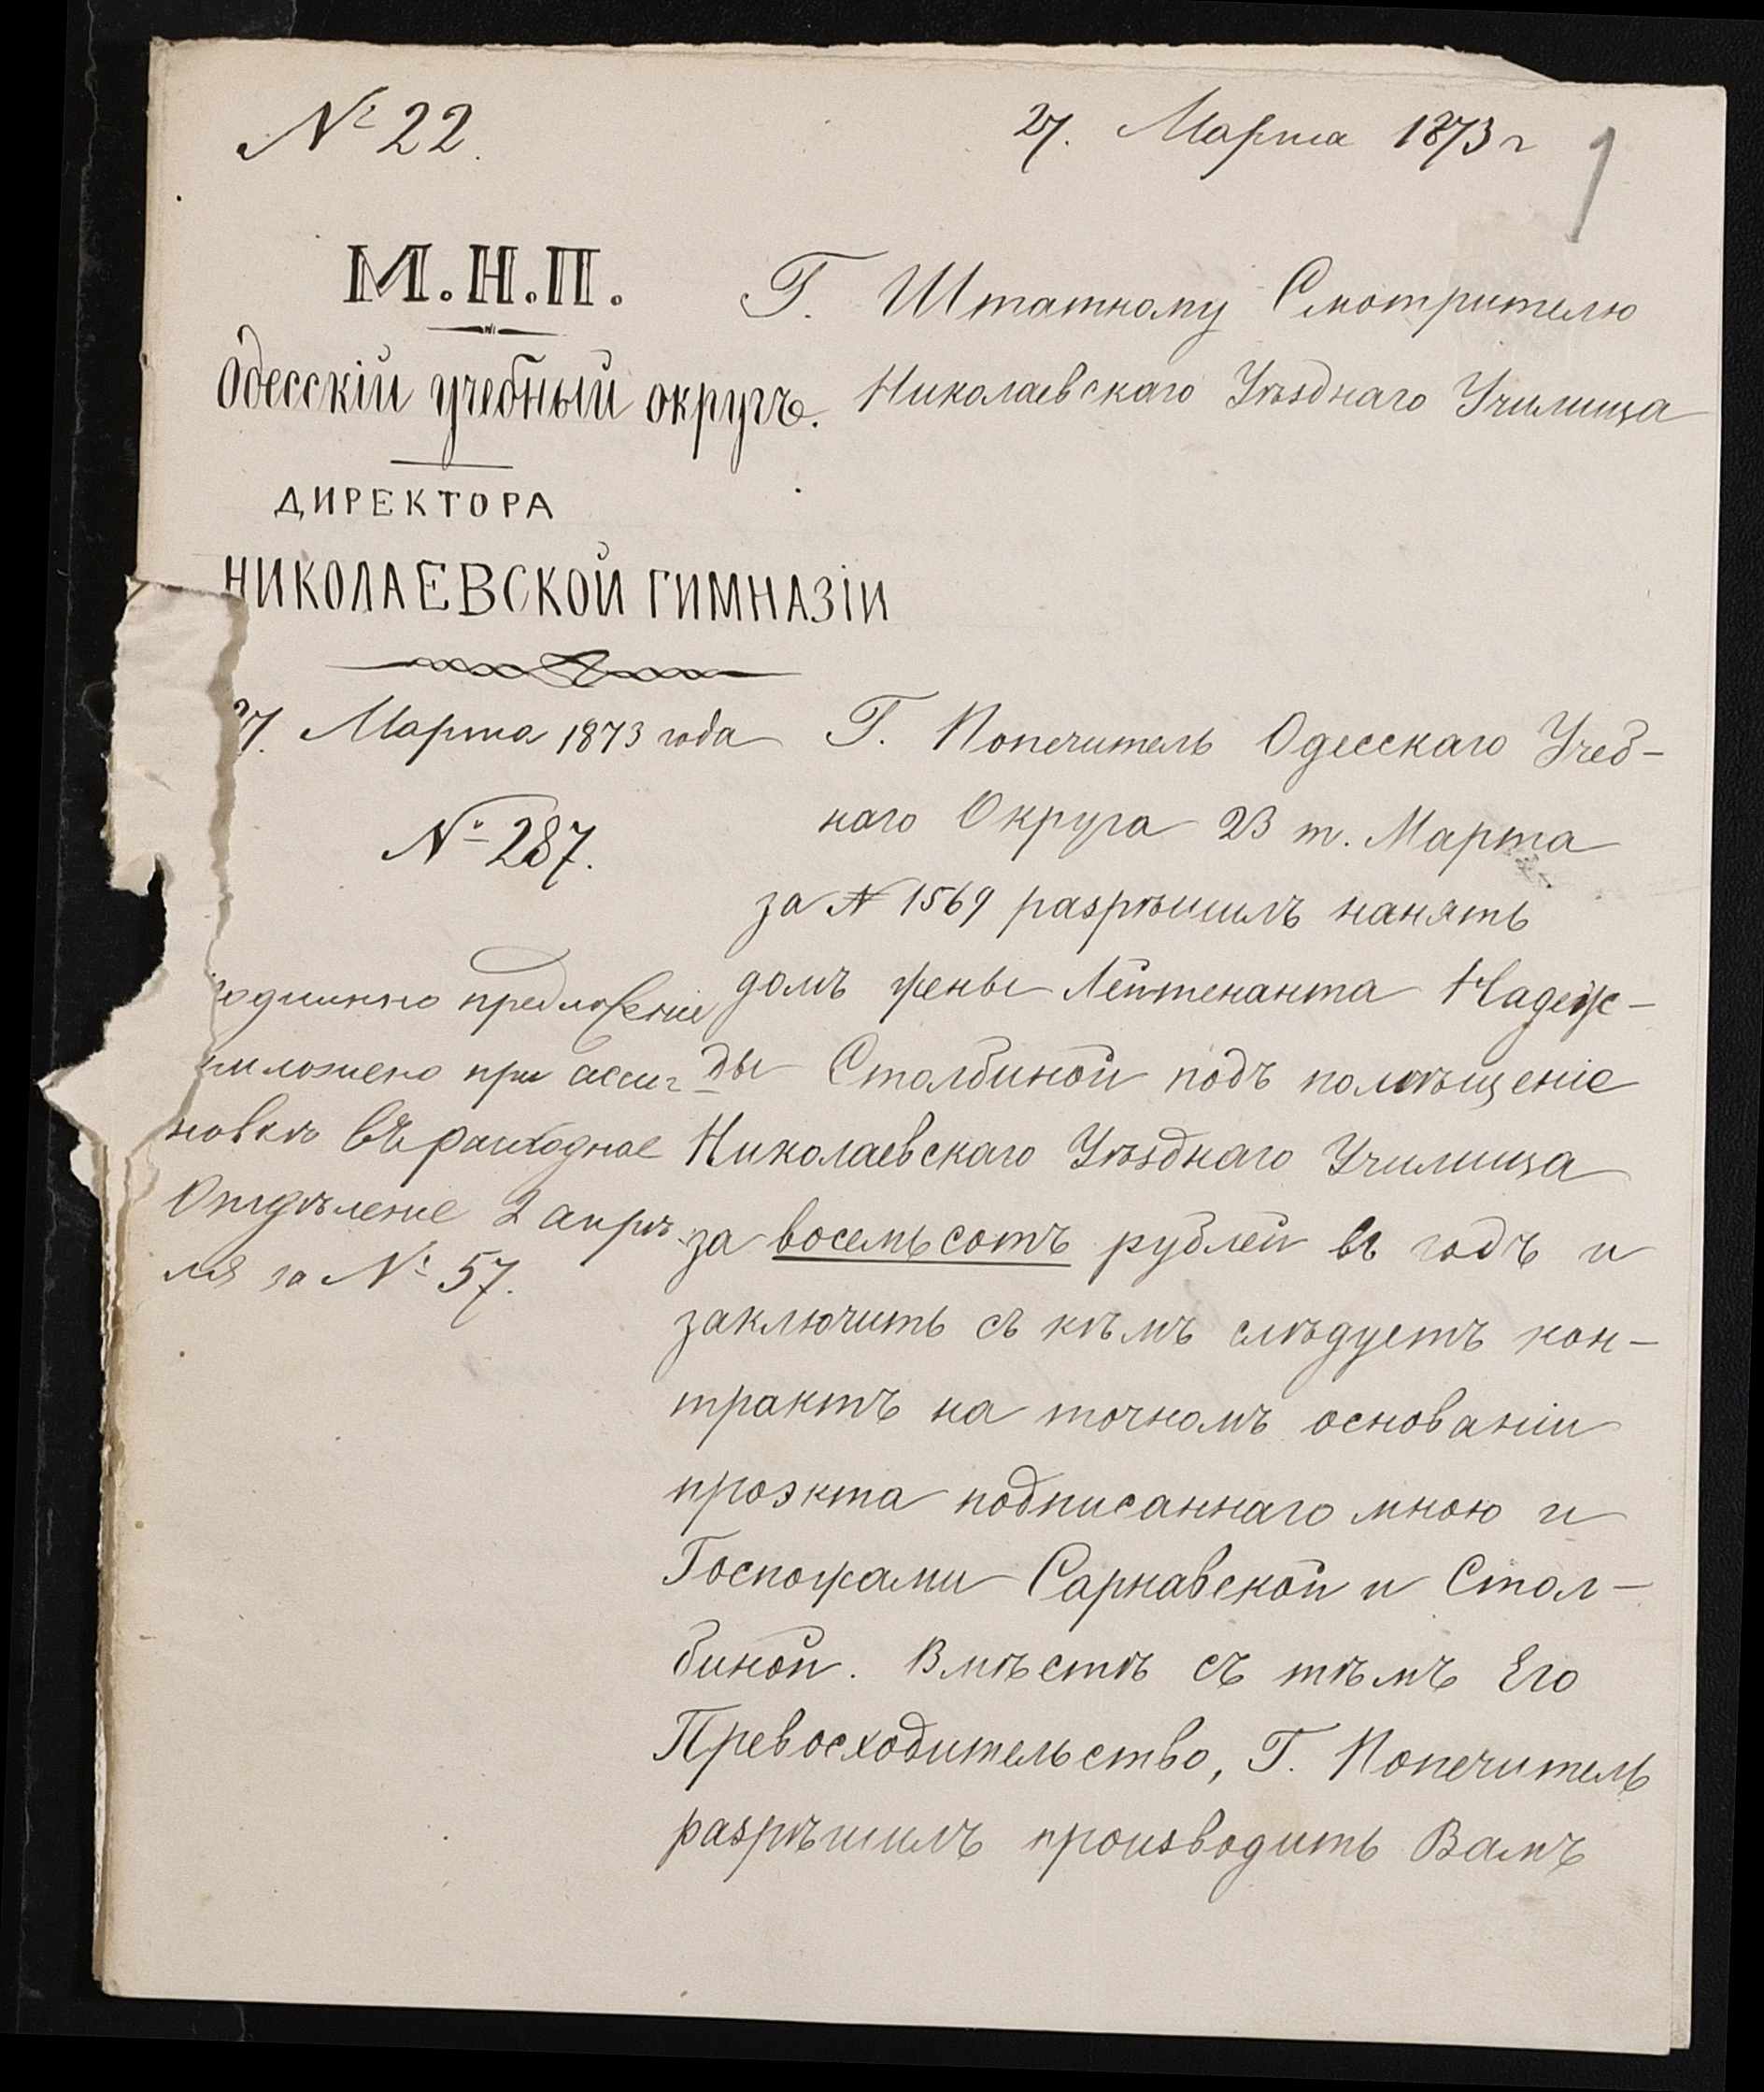 № 22.
27. Марта 1873 г
1
М.Н.П.
Одесскій учебный округъ.
ДИРЕКТОРА
НИКОЛАЕВСКОЙ ГИМНАЗІИ
27. Марта 1873 года
№ 287.
одлинно предложеніе
иложено при ассиг-
новкѣ въ расходное
Отдѣленіе 2 апрѣ-
ля за № 57.
Г. Штатному Смотрителю
Николаевскаго Уѣзднаго Училища
Г. Попечитель Одесскаго Учеб-
наго Округа 23 т. Марта
за № 1569 разрѣшилъ нанять
домъ жены Лейтенанта Надеж-
ды Столбиной подъ помѣщеніе
Николаевскаго Уѣзднаго Училища
за восемьсотъ рублей въ годъ и
заключить съ кѣмъ слѣдуетъ кон-
трактъ на точномъ основаніи
проэкта подписаннаго мною и
Госпожами Сарнавской и Стол-
биной. Вмѣстѣ съ тѣмъ Его
Превосходительство, Г. Попечитель
разрѣшилъ производить Вамъ